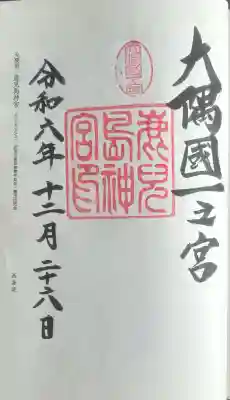 大隅國一之宮
鹿児
島神
宮印
令和六年十二月二十六日